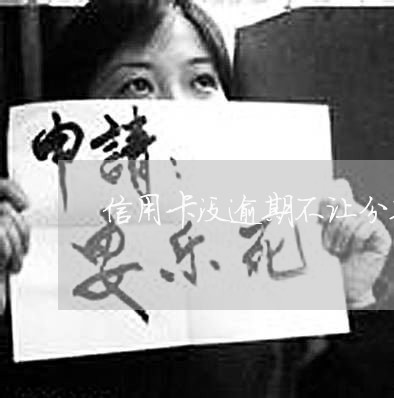 申請：
信用卡没逾期不让分
安乐死